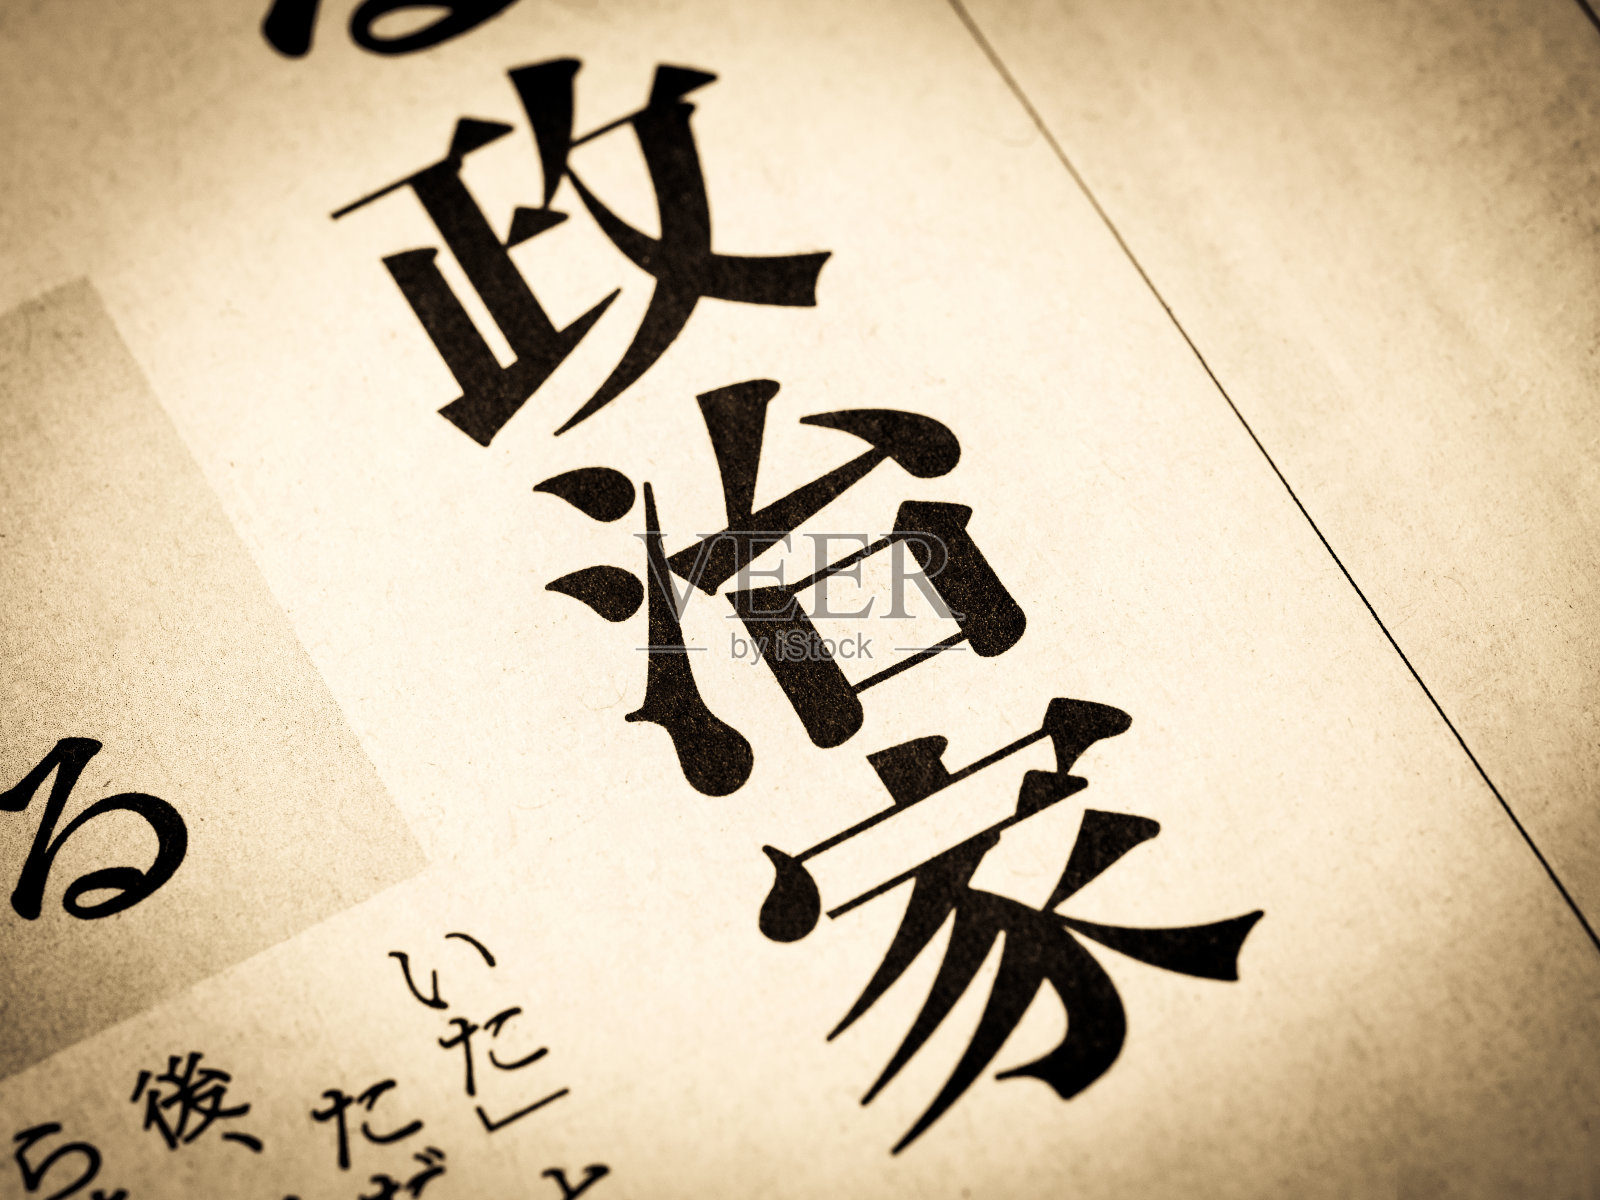 政治家
る
いた」
ただ
後、
ら
VEER
by iStock